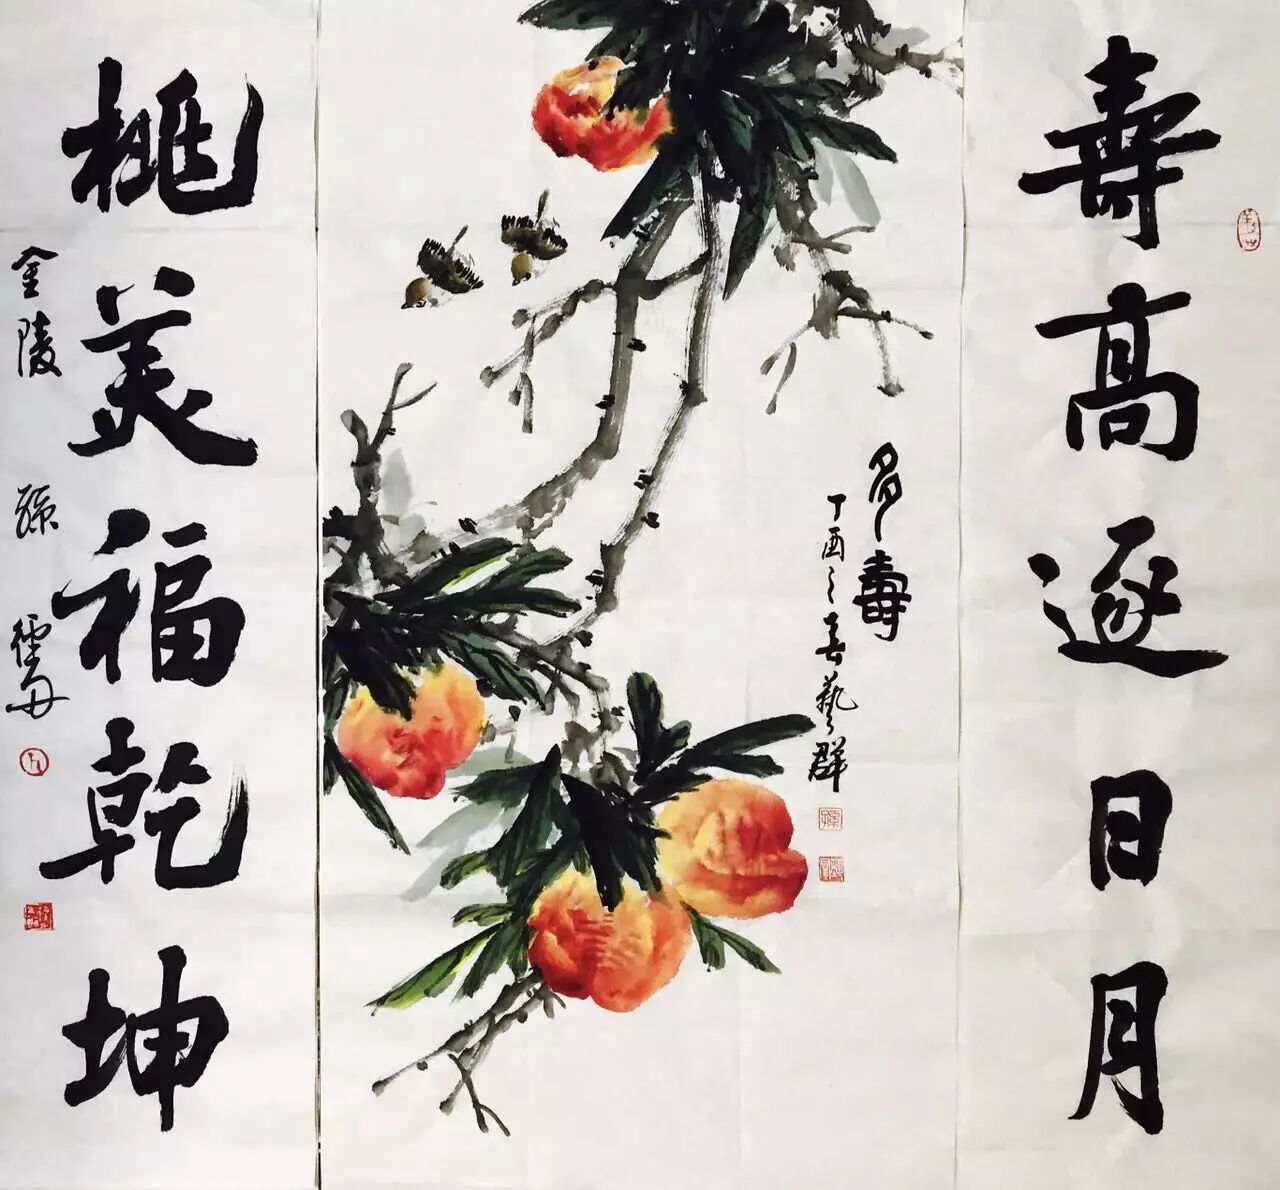 壽高逐日月
多壽
丁酉之春藝群
桃美福乾坤
金陵 孫